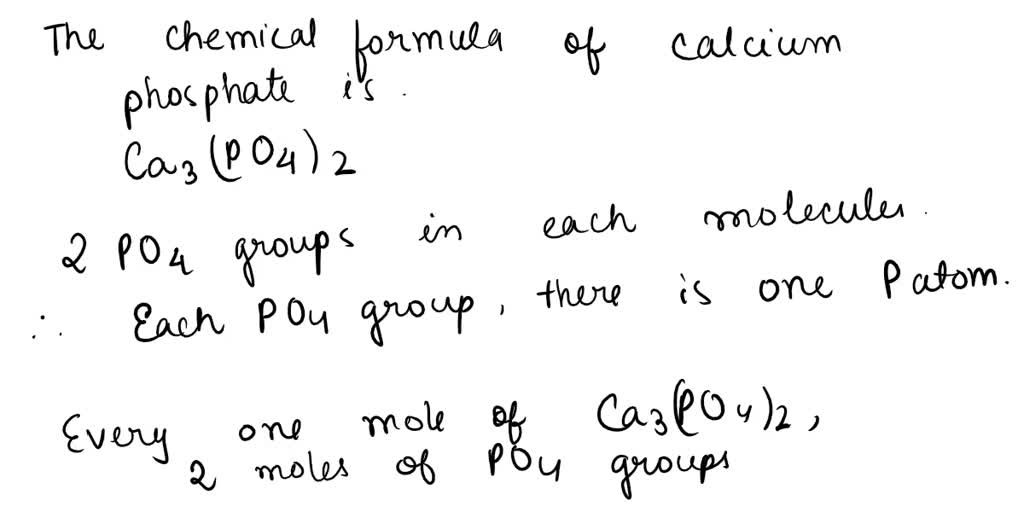 The chemical formula of calcium
phosphate is.
Ca3(PO4)2
2 PO4 groups in each molecules.
∴ Each PO4 group, there is one P atom.
Every one mole of Ca3(PO4)2,
2 moles of PO4 groups